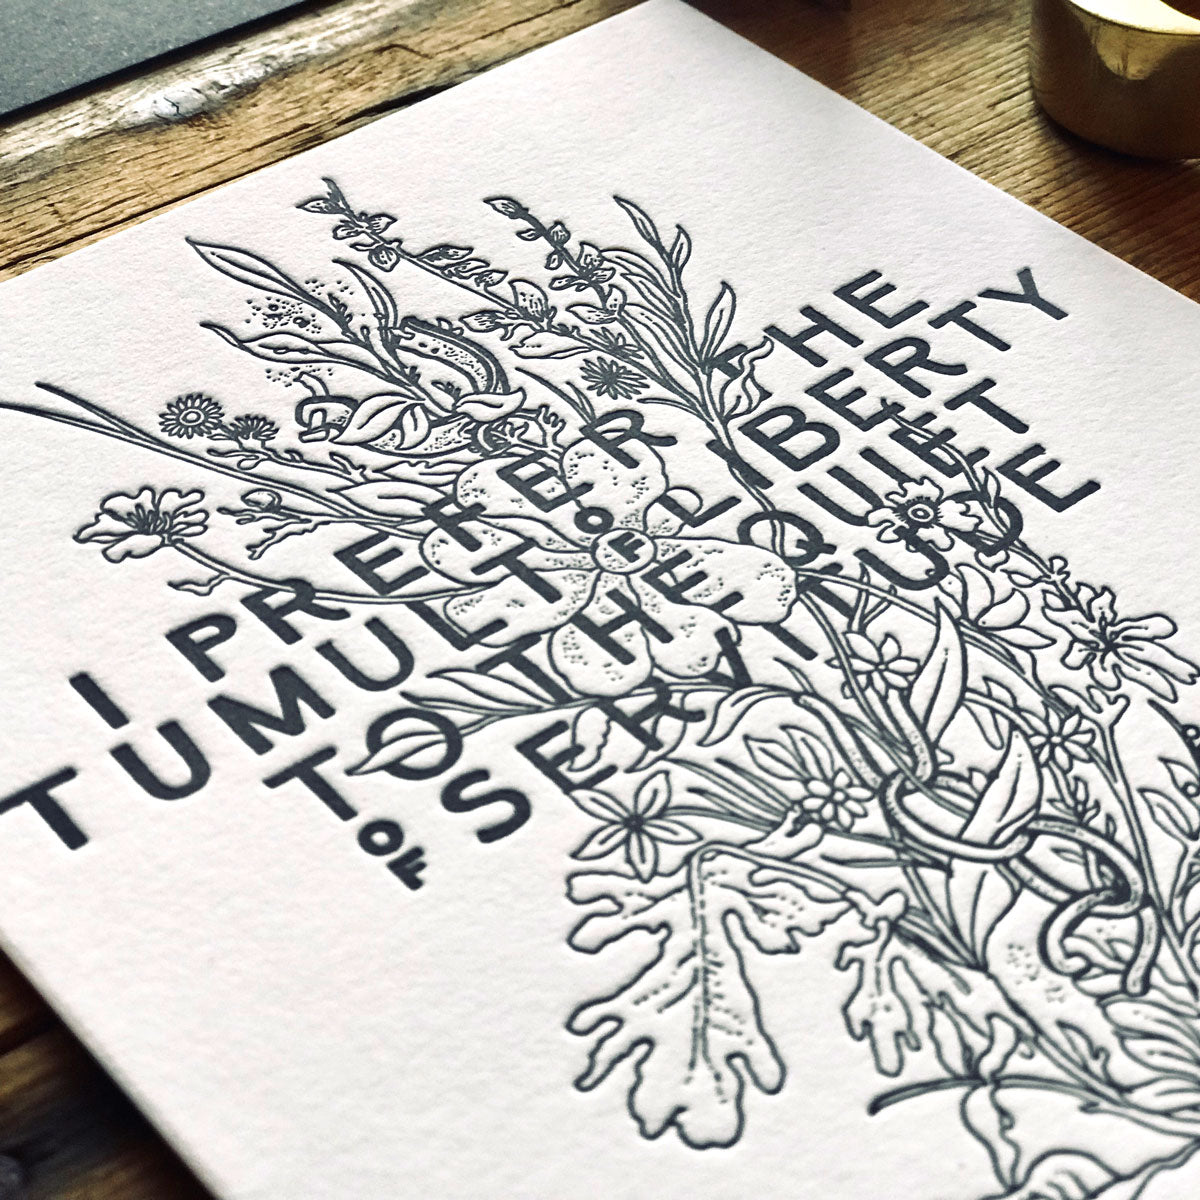 I PREFER THE
TUMULT OF LIBERTY
TO THE QUIET
OF SERVITUDE